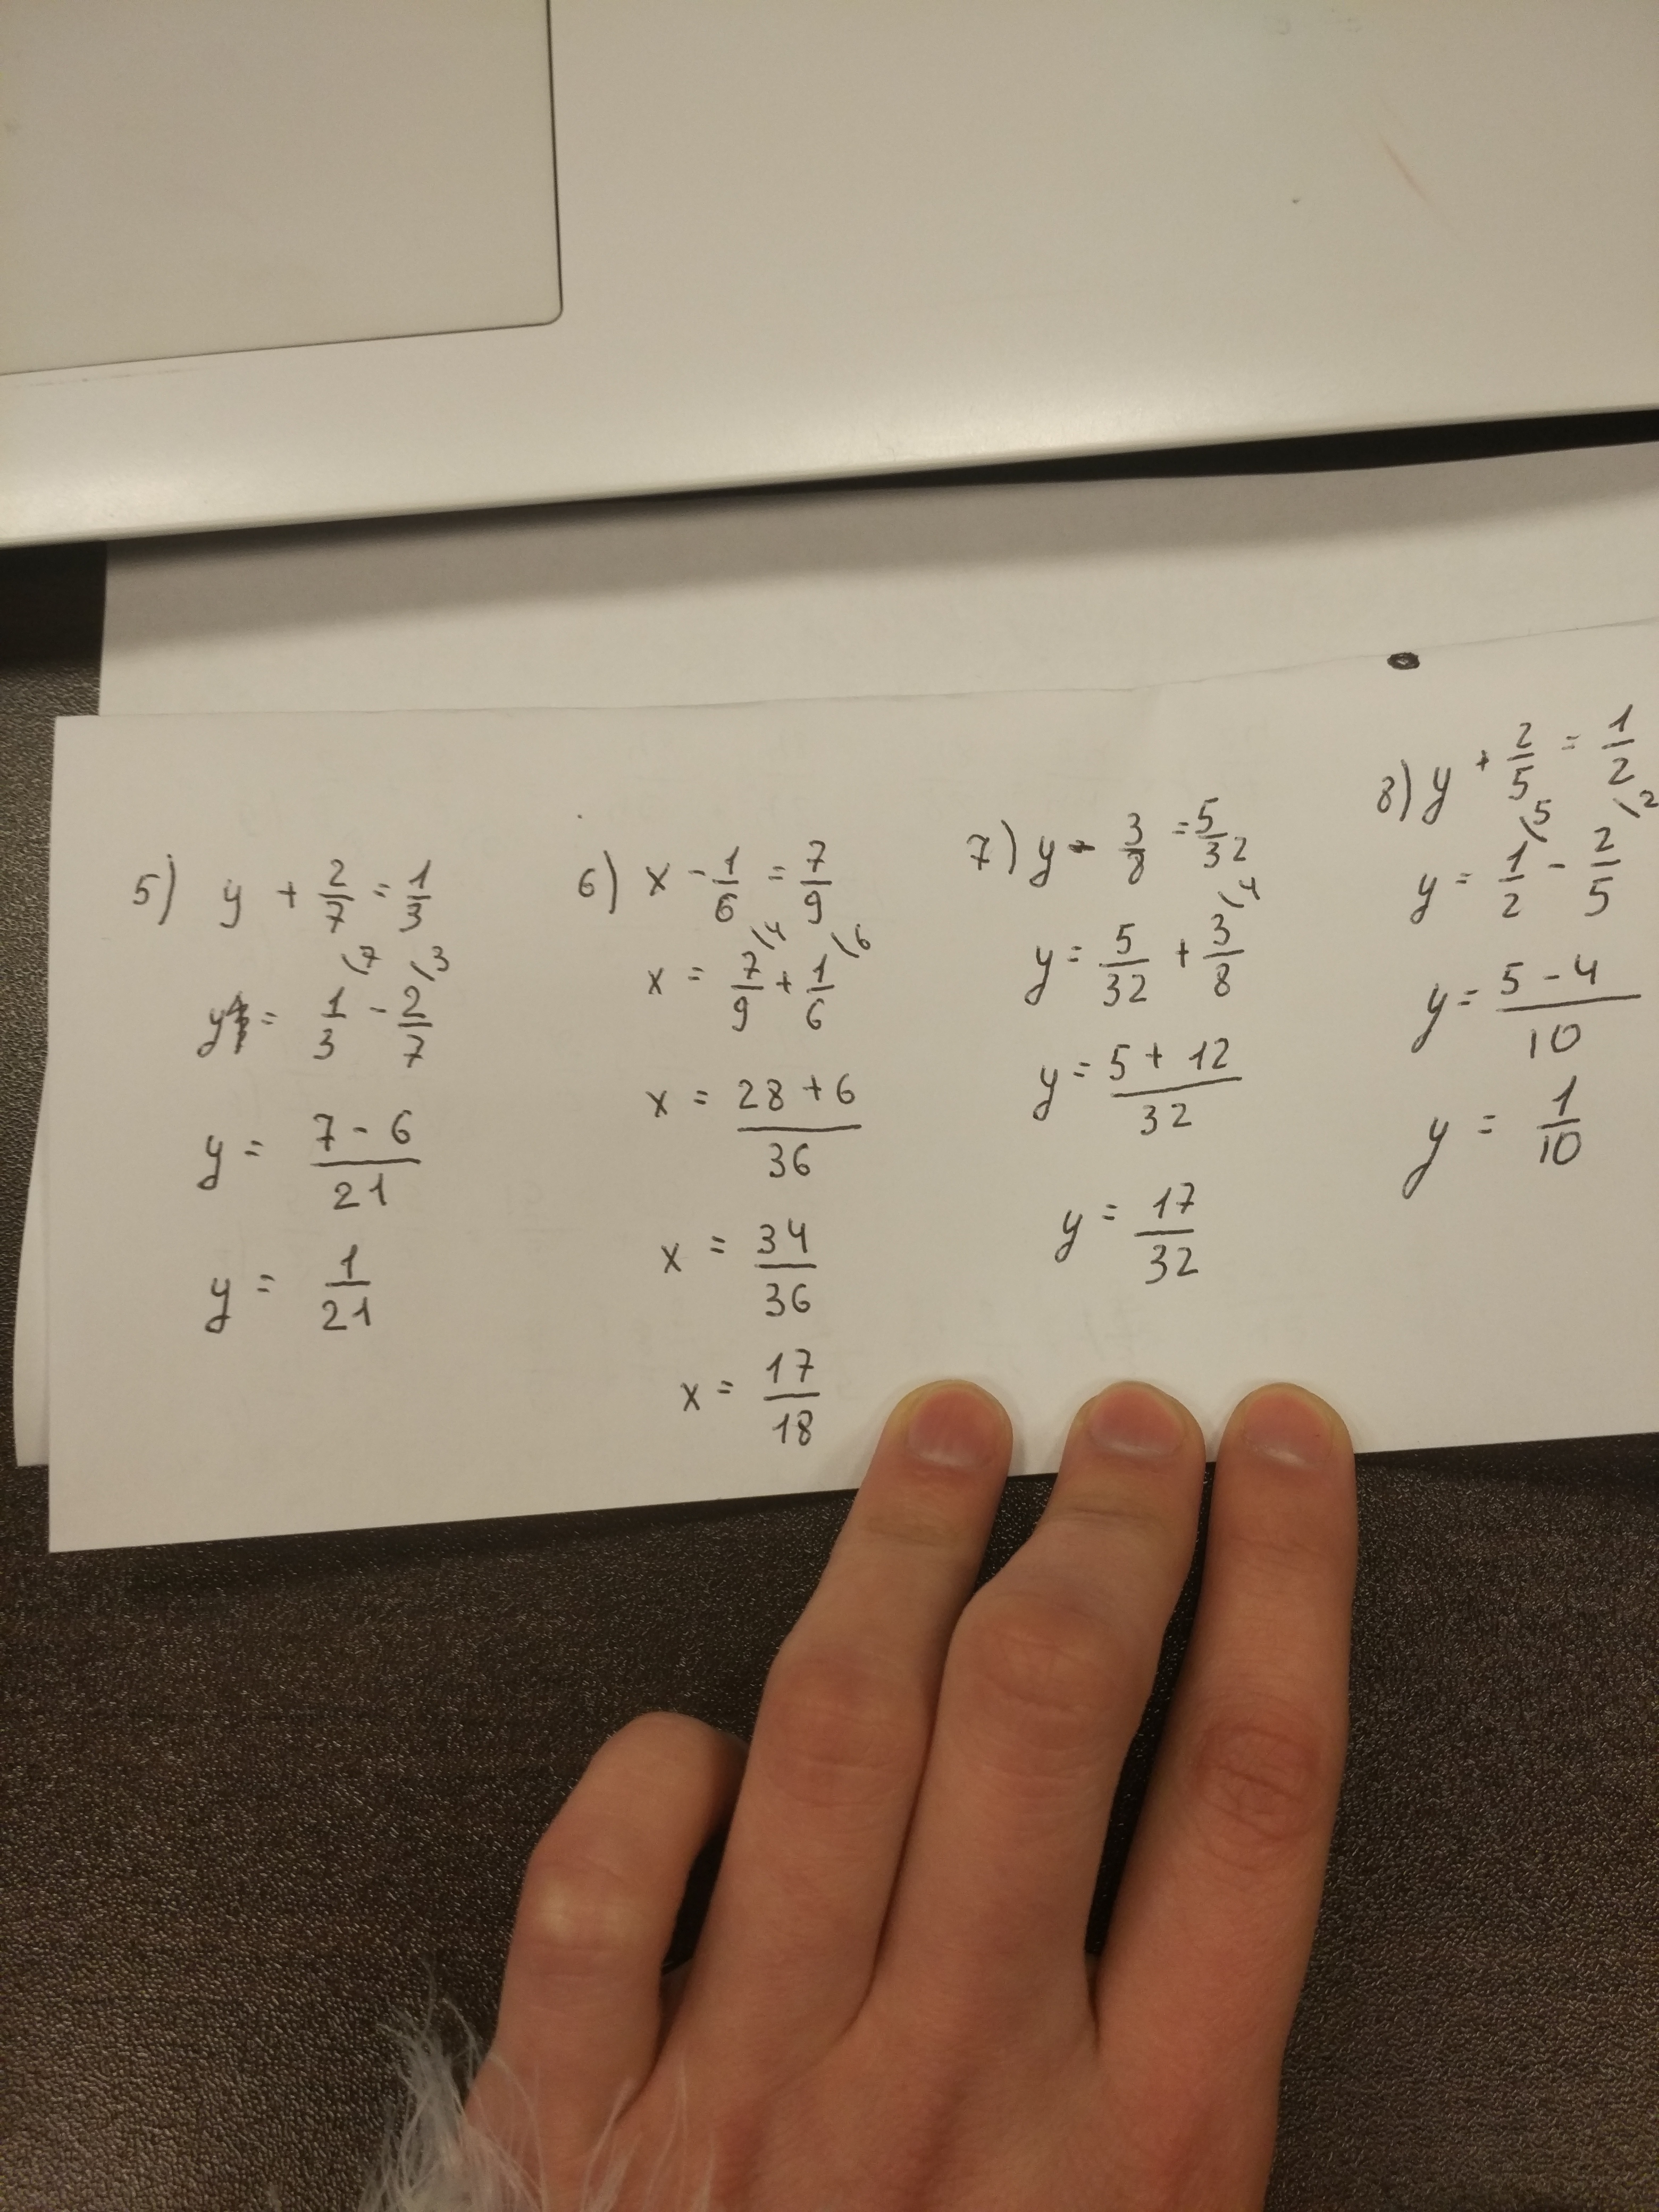 5) y + 2/7 = 1/3
y = 1/3 \7 - 2/7 \3
y = (7 - 6)/21
y = 1/21
6) x - 1/6 = 7/9
x = 7/9 \4 + 1/6 \6
x = (28 + 6)/36
x = 34/36
x = 17/18
7) y - 3/8 = 5/32
y = 5/32 + 3/8 \4
y = (5 + 12)/32
y = 17/32
8) y + 2/5 = 1/2
y = 1/2 \5 - 2/5 \2
y = (5 - 4)/10
y = 1/10